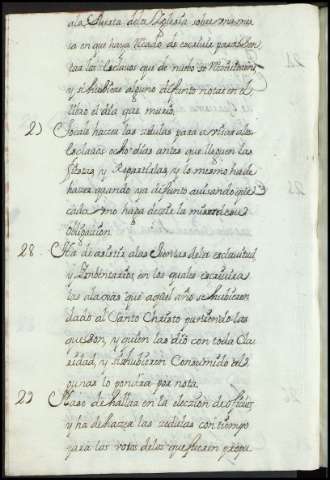 ala Puerta de la Yglesia sobre mesma
sa en que haya Recado de escriuir para Sen
tar los Esclauos que de nueuo se
y si hubiere alguno difunto notar en el
libro el dia que murio.
2 Tocale hazer las zedulas para auisar a los
Esclauos ocho dias antes que lleguen las
fiestas y Repartirlas, y lo mismo ha de
hazer quando aya difunto auisando que
cada vno haga dezir la misa de su
obligacion
28 Ha de asistir a las Cuentas de la esclauitud,
y Ynbentarios, en los quales escriuira
las alajas que aquel año se hubieren
dado al Santo Christo poniendo las
que son, y quien las dio con toda Cla
ridad, y si se hubieren Consumido al
gunas lo pondra por nota.
29 de hallar en la eleczion de oficios
y ha de hazer las zedulas con tiempo
para los votos de los que fueren propu